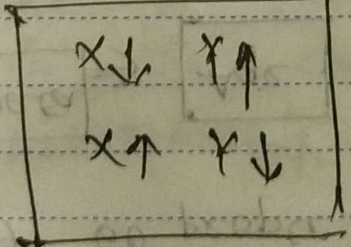 X↓ Y↑
X↑ Y↓